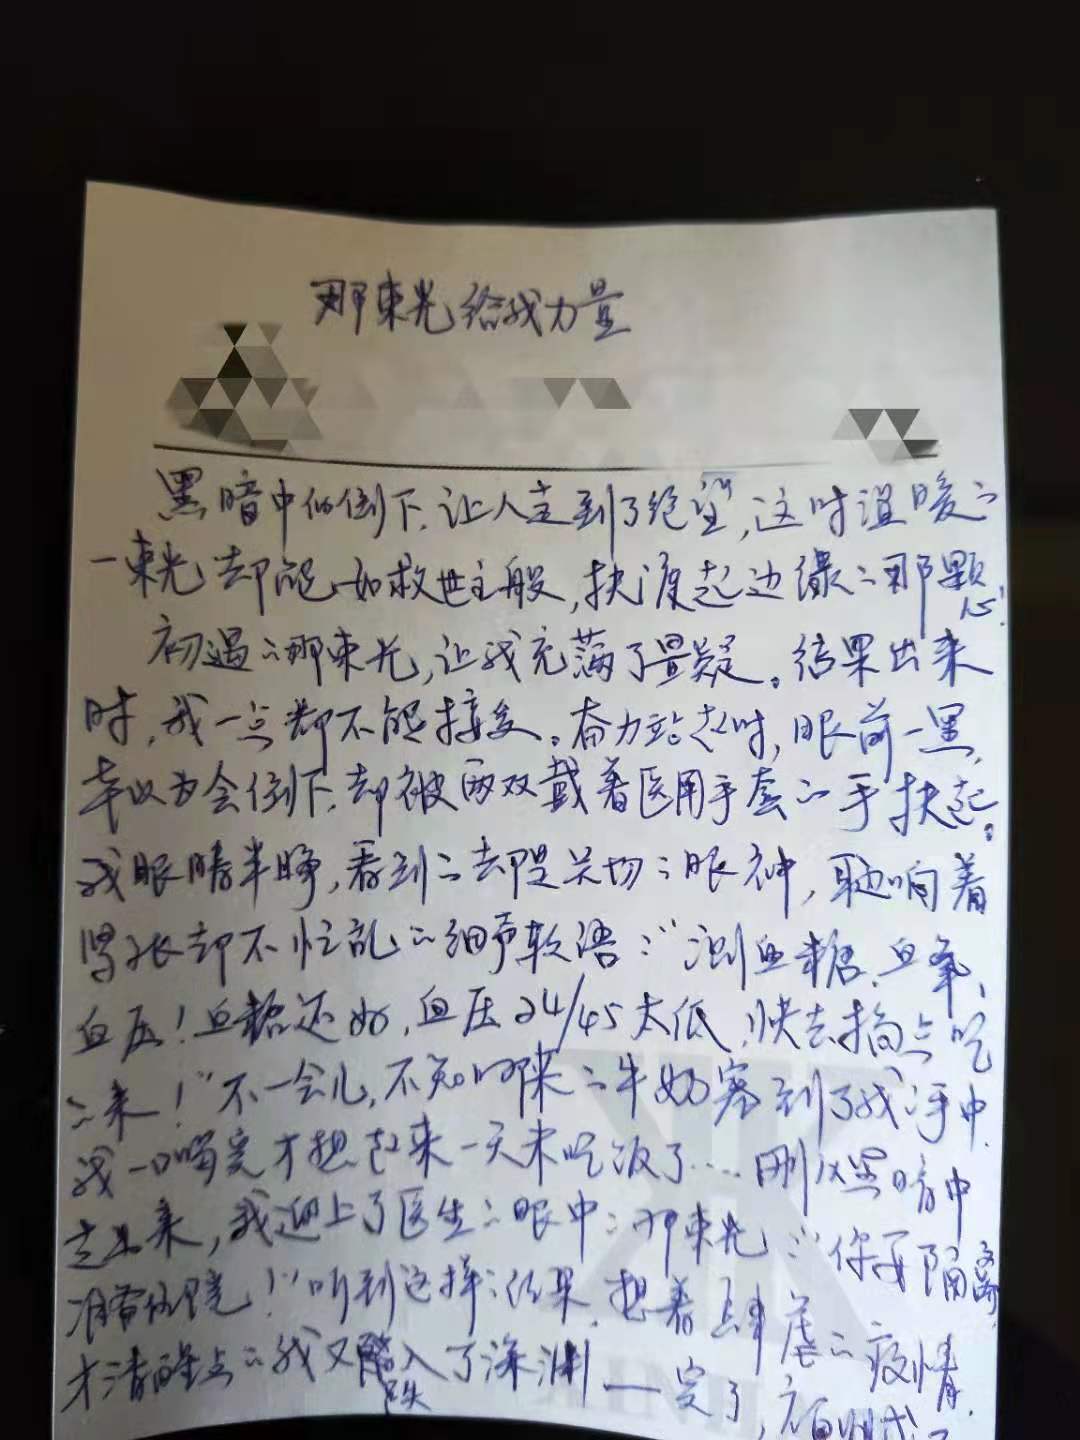 那束光给我力量
黑暗中的倒下,让人走到了绝望,这时温暖的
一束光却能如救世主般,扶渡起边缘的那颗心!
初遇的那束光,让我充满了置疑。结果出来
时,我一点都不能接受。奋力站起时,眼前一黑,
本以为会倒下,却被两双戴着医用手套的手扶起。
我眼睛半睁,看到的却是关切的眼神,耳边响着
紧张却不忙乱的细声软语:“测血糖、血氧、
血压!血糖还好,血压24/45太低,快去搞点吃
的来!”不一会儿,不知哪来的牛奶塞到了我的手中.
我一口喝完才想起来一天未吃饭了....刚从黑暗中
走出来,我迎上了医生的眼中的那束光:“你要隔离,
准备住院!”听到这样的结果,想着肆虐的疫情,
才清醒点的我又跌入了深渊——完了,